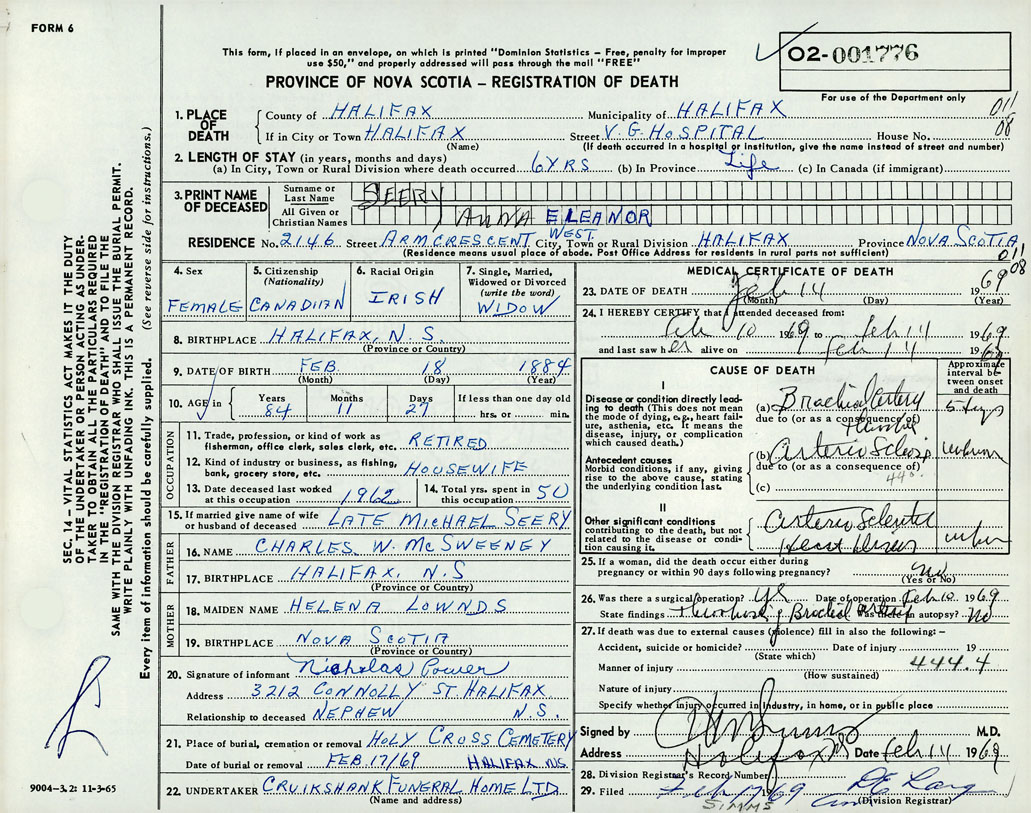 FORM 6
This form, if placed in an envelope, on which is printed "Dominion Statistics – Free, penalty for improper
use $50," and properly addressed will pass through the mail "FREE"
O2-001776
For use of the Department only
PROVINCE OF NOVA SCOTIA – REGISTRATION OF DEATH
011
08
1. PLACE OF DEATH
County of HALIFAX Municipality of HALIFAX
If in City or Town HALIFAX Street V. G. HOSPITAL House No.
(Name) (If death occurred in a hospital or institution, give the name instead of street and number)
2. LENGTH OF STAY (in years, months and days)
(a) In City, Town or Rural Division where death occurred 6 YRS (b) In Province Life (c) In Canada (if immigrant)
3. PRINT NAME OF DECEASED
Surname or Last Name SEERY
All Given or Christian Names ANNA ELEANOR
RESIDENCE No. 2146 Street ARMCRESCENT WEST City, Town or Rural Division HALIFAX Province NOVA SCOTIA
(Residence means usual place of abode. Post Office Address for residents in rural parts not sufficient)
011
08
4. Sex FEMALE
5. Citizenship (Nationality) CANADIAN
6. Racial Origin IRISH
7. Single, Married, Widowed or Divorced (write the word) WIDOW
8. BIRTHPLACE HALIFAX, N.S.
(Province or Country)
9. DATE OF BIRTH FEB. 18 1884
(Month) (Day) (Year)
10. AGE in Years 84 Months 11 Days 27 If less than one day old hrs. or min.
OCCUPATION
11. Trade, profession, or kind of work as fisherman, office clerk, sales clerk, etc. RETIRED
12. Kind of industry or business, as fishing, bank, grocery store, etc. HOUSEWIFE
13. Date deceased last worked at this occupation 1962
14. Total yrs. spent in this occupation 50
15. If married give name of wife or husband of deceased LATE MICHAEL SEERY
FATHER
16. NAME CHARLES W. McSWEENEY
17. BIRTHPLACE HALIFAX, N.S
(Province or Country)
MOTHER
18. MAIDEN NAME HELENA LOWNDS
19. BIRTHPLACE NOVA SCOTIA
(Province or Country)
20. Signature of informant Nicholas Power
Address 3212 CONNOLLY ST. HALIFAX
Relationship to deceased NEPHEW N.S.
21. Place of burial, cremation or removal HOLY CROSS CEMETERY
Date of burial or removal FEB. 17/69 HALIFAX N.S.
22. UNDERTAKER CRUIKSHANK FUNERAL HOME LTD.
(Name and address)
MEDICAL CERTIFICATE OF DEATH
23. DATE OF DEATH Feb 14 1969
(Month) (Day) (Year)
24. I HEREBY CERTIFY that I attended deceased from:
Feb 10 1969 to Feb 14 1969
and last saw her alive on Feb 14 1969
CAUSE OF DEATH
Approximate interval between onset and death
I
Disease or condition directly leading to death (This does not mean the mode of dying, e.g., heart failure, asthenia, etc. It means the disease, injury, or complication which caused death.)
(a) Brachial Artery 5 days
due to (or as a consequence of)
Antecedent causes
Morbid conditions, if any, giving rise to the above cause, stating the underlying condition last.
(b) Arterio Sclerosis unknown
due to (or as a consequence of)
(c)
II
Other significant conditions contributing to the death, but not related to the disease or condition causing it.
Arterio Sclerotic
Heart Disease
25. If a woman, did the death occur either during pregnancy or within 90 days following pregnancy? No
(Yes or No)
26. Was there a surgical operation? yes Date of operation Feb 10 1969
State findings Thrombosis of Brachial artery Was there an autopsy? No
27. If death was due to external causes (violence) fill in also the following: –
Accident, suicide or homicide? Date of injury 19
(State which)
Manner of injury 444.4
(How sustained)
Nature of injury
Specify whether injury occurred in industry, in home, or in public place
Signed by M.D.
Address Halifax NS Date Feb 14 1969
28. Division Registrar's Record Number
29. Filed Feb 17 1969
(Division Registrar)
SIMMS
SEC. 14 – VITAL STATISTICS ACT MAKES IT THE DUTY
OF THE UNDERTAKER OR PERSON ACTING AS UNDER-
TAKER TO OBTAIN ALL THE PARTICULARS REQUIRED
IN THE "REGISTRATION OF DEATH" AND TO FILE THE
SAME WITH THE DIVISION REGISTRAR WHO SHALL ISSUE THE BURIAL PERMIT.
WRITE PLAINLY WITH UNFADING INK. THIS IS A PERMANENT RECORD.
Every item of information should be carefully supplied. (See reverse side for instructions.)
9004–3.2: 11-3-65